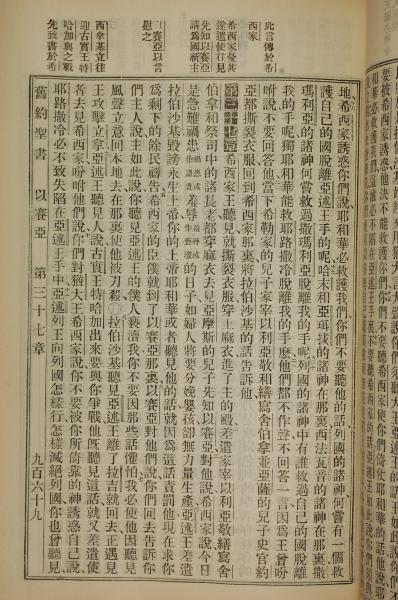 此言傳於
希西家
希西家受其
遂遣使往見
先知以賽亞
請爲國祈主
以賽亞以言
慰之
西拿基立往
迎古實王特
哈加與之戰
先致書於希
地希西家誘惑你們說耶和華必救護我們你們不要聽他的話列國的諸神何嘗有一個救
護自己的國脫離亞述王手的呢哈末和亞珥拔的諸神在那裏西法瓦音的諸神在那裏撒
瑪利亞的諸神何嘗救過撒瑪利亞脫離我的手呢列國的諸神中有誰救過自己的國脫離
我的手呢獨耶和華能救耶路撒冷脫離我的手麽他們都不作聲不回答一言因爲王曾吩
咐說不要回答他當下希勒家的兒子家宰以利亞敬和繕寫舍伯拿並亞薩的兒子史官約
亞都撕裂衣服回到希西家那裏將拉伯沙基的話告訴他
第三十七章希西家王聽見就撕裂衣服穿上麻衣進了主的殿差遣家宰以利亞敬繕寫舍
伯拿和祭司中的諸長老都穿麻衣去見亞摩斯的兒子先知以賽亞對他說希西家說今日
是急難禍患羞辱的日子如婦人將要分娩嬰孩卻無力量生產亞述王差遣
拉伯沙基毀謗永生上帝你的上帝耶和華或者聽見他的話就因爲這話責罰他現在求你
爲剩下的餘民禱告希西家的臣僕就到了以賽亞那裏以賽亞對他們說你們回去告訴你
們主人說主如此說你聽見亞述王的僕人褻瀆我你不要因那些話懼怕我必使他因聽見
風聲立意回本地去在那裏使他被刀殺〇拉伯沙基聽見亞述王離了拉吉就回去正遇見
王攻擊立拿亞述王聽見人說古實王特哈加出來要與你爭戰他既聽見這話就又差遣使
者去見希西家吩咐他們說你們對猶大王希西家說不要被你所倚靠的神誘惑自己說
耶路撒冷必不致失陷在亞述王手中亞述列王向列國怎樣行怎樣滅絕列國你也曾聽見
舊約聖書 以賽亞 第三十七章 九百六十九